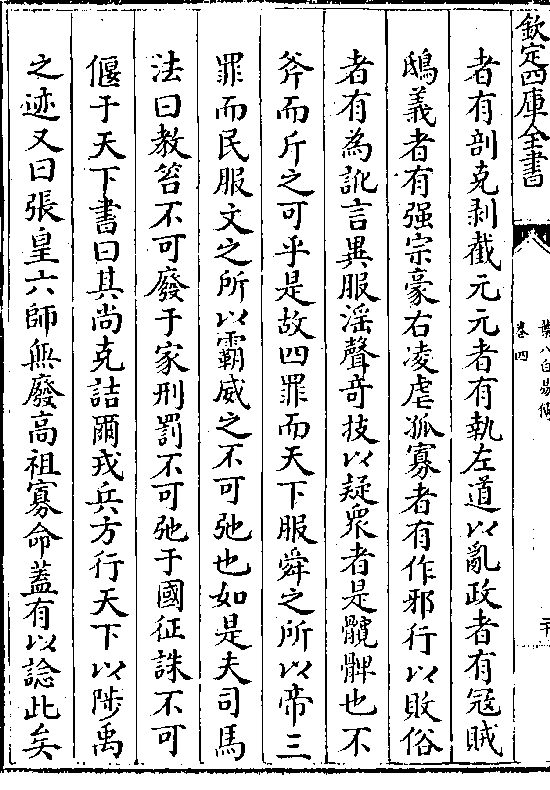 欽定四庫全書
葉八白易傳
卷四
二十
者有剖克剥截元元者有執左道以亂政者有冦賊
鴟義者有强宗豪右凌虐孤寡者有作邪行以敗俗
者有為訛言異服淫聲竒技以疑衆者是髖髀也不
斧而斤之可乎是故四罪而天下服舜之所以帝三
罪而民服文之所以霸威之不可弛也如是夫司馬
法曰教笞不可廢于家刑罰不可弛于國征誅不可
偃于天下書曰其尚克詰爾戎兵方行天下以陟禹
之迹又曰張皇六師無廢高祖寡命蓋有以諗此矣